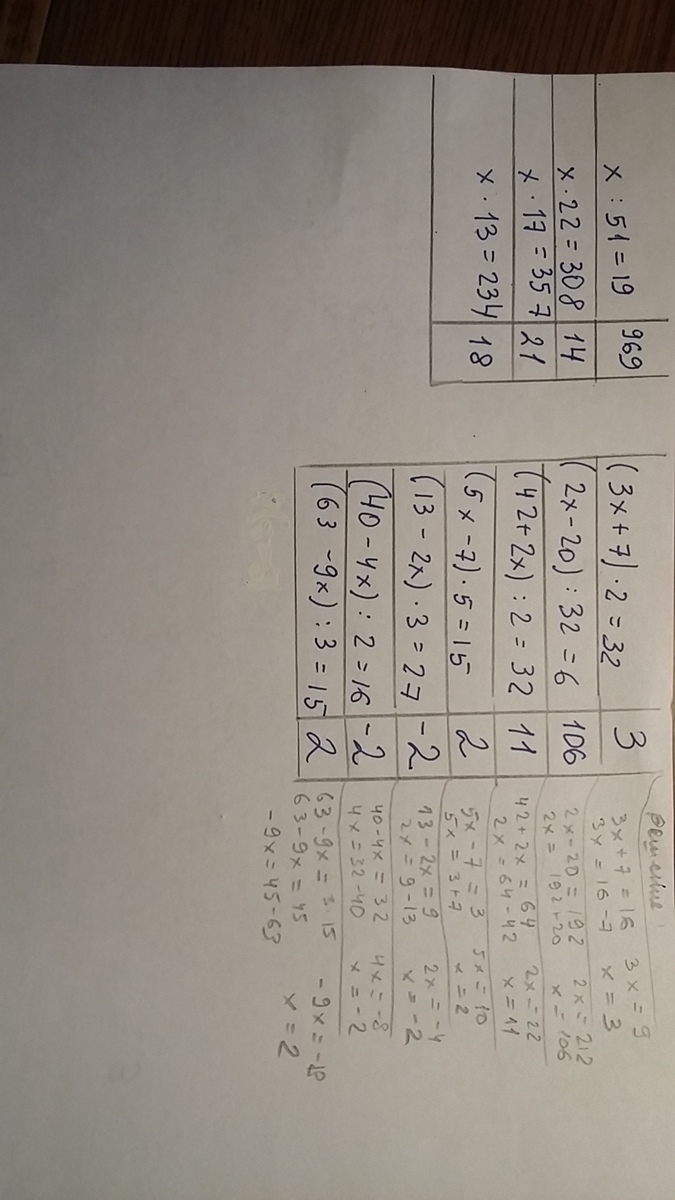 x : 51 = 19 969
x · 22 = 308 14
x · 17 = 357 21
x · 13 = 234 18
(3x + 7) · 2 = 32 3
(2x - 20) : 32 = 6 106
(42 + 2x) : 2 = 32 11
(5x - 7) · 5 = 15 2
(13 - 2x) · 3 = 27 -2
(40 - 4x) : 2 = 16 -2
(63 - 9x) : 3 = 15 2
Решение
3x + 7 = 16 3x = 9
3x = 16 - 7 x = 3
2x - 20 = 192 2x = 212
2x = 192 + 20 x = 106
42 + 2x = 64 2x = 22
2x = 64 - 42 x = 11
5x - 7 = 3 5x = 10
5x = 3 + 7 x = 2
13 - 2x = 9 2x = -4
2x = 9 - 13 x = -2
40 - 4x = 32 4x = -8
4x = 32 - 40 x = -2
63 - 9x = 3·15 -9x = -18
63 - 9x = 45 x = 2
-9x = 45 - 63